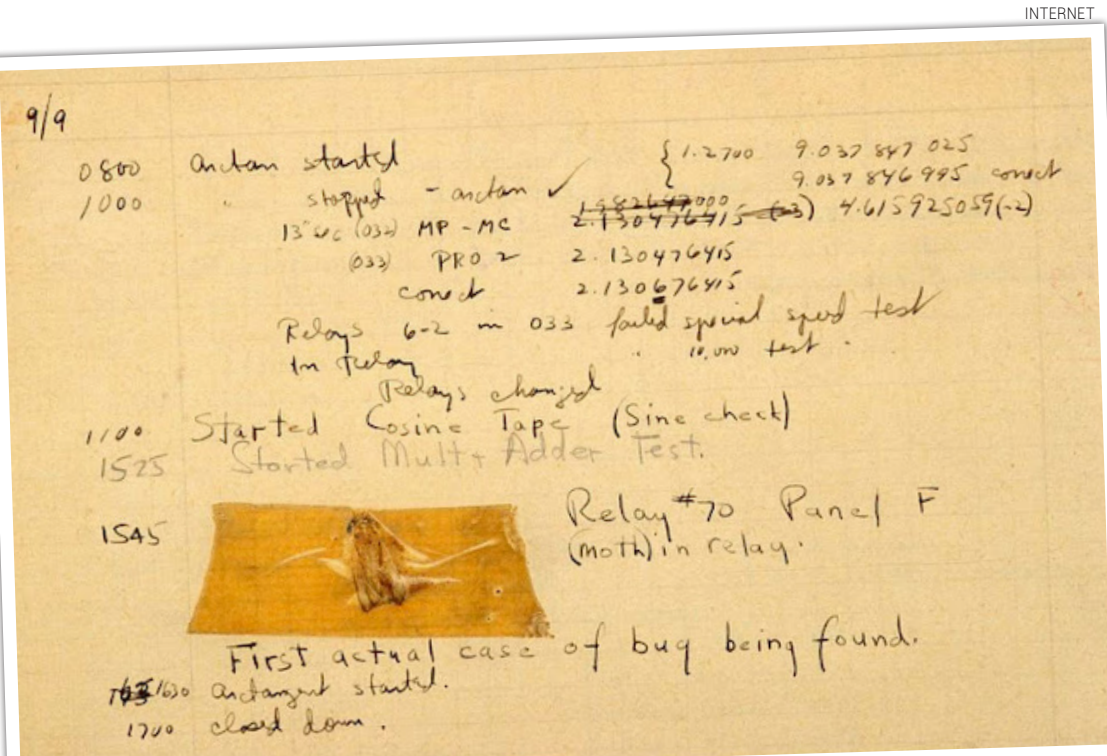 INTERNET
9/9
0800 arctan started { 1.2700 9.037 847 025
1000 " stopped - arctan ✓ 9.037 846 995 correct
13" uc (032) MP - MC 2.130476415 (-3) 4.615925059(-2)
(033) PRO 2 2.130476415
correct 2.130676415
Relays 6-2 in 033 failed special speed test
In Relay " 10,000 test .
Relays changed
1100 Started Cosine Tape (Sine check)
1525 Started Mult+ Adder Test.
1545 Relay #70 Panel F
(moth) in relay.
First actual case of bug being found.
1630 arctangent started.
1700 closed down .